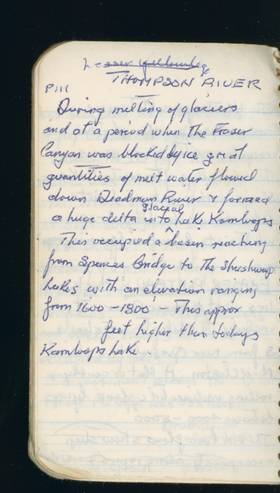 THOMPSON RIVER
P 111
During melting of glaciers
and at a period when the Fraser
Canyon was blocked by ice great
quantities of melt water flowed
down Deadman River & formed
a huge delta into glacial Lake Kamloops
This occupied a basin reaching
from Spences Bridge to the Shushwap
Lakes with an elevation ranging
from 1600 - 1800' - This approx
feet higher than todays
Kamloops Lake.